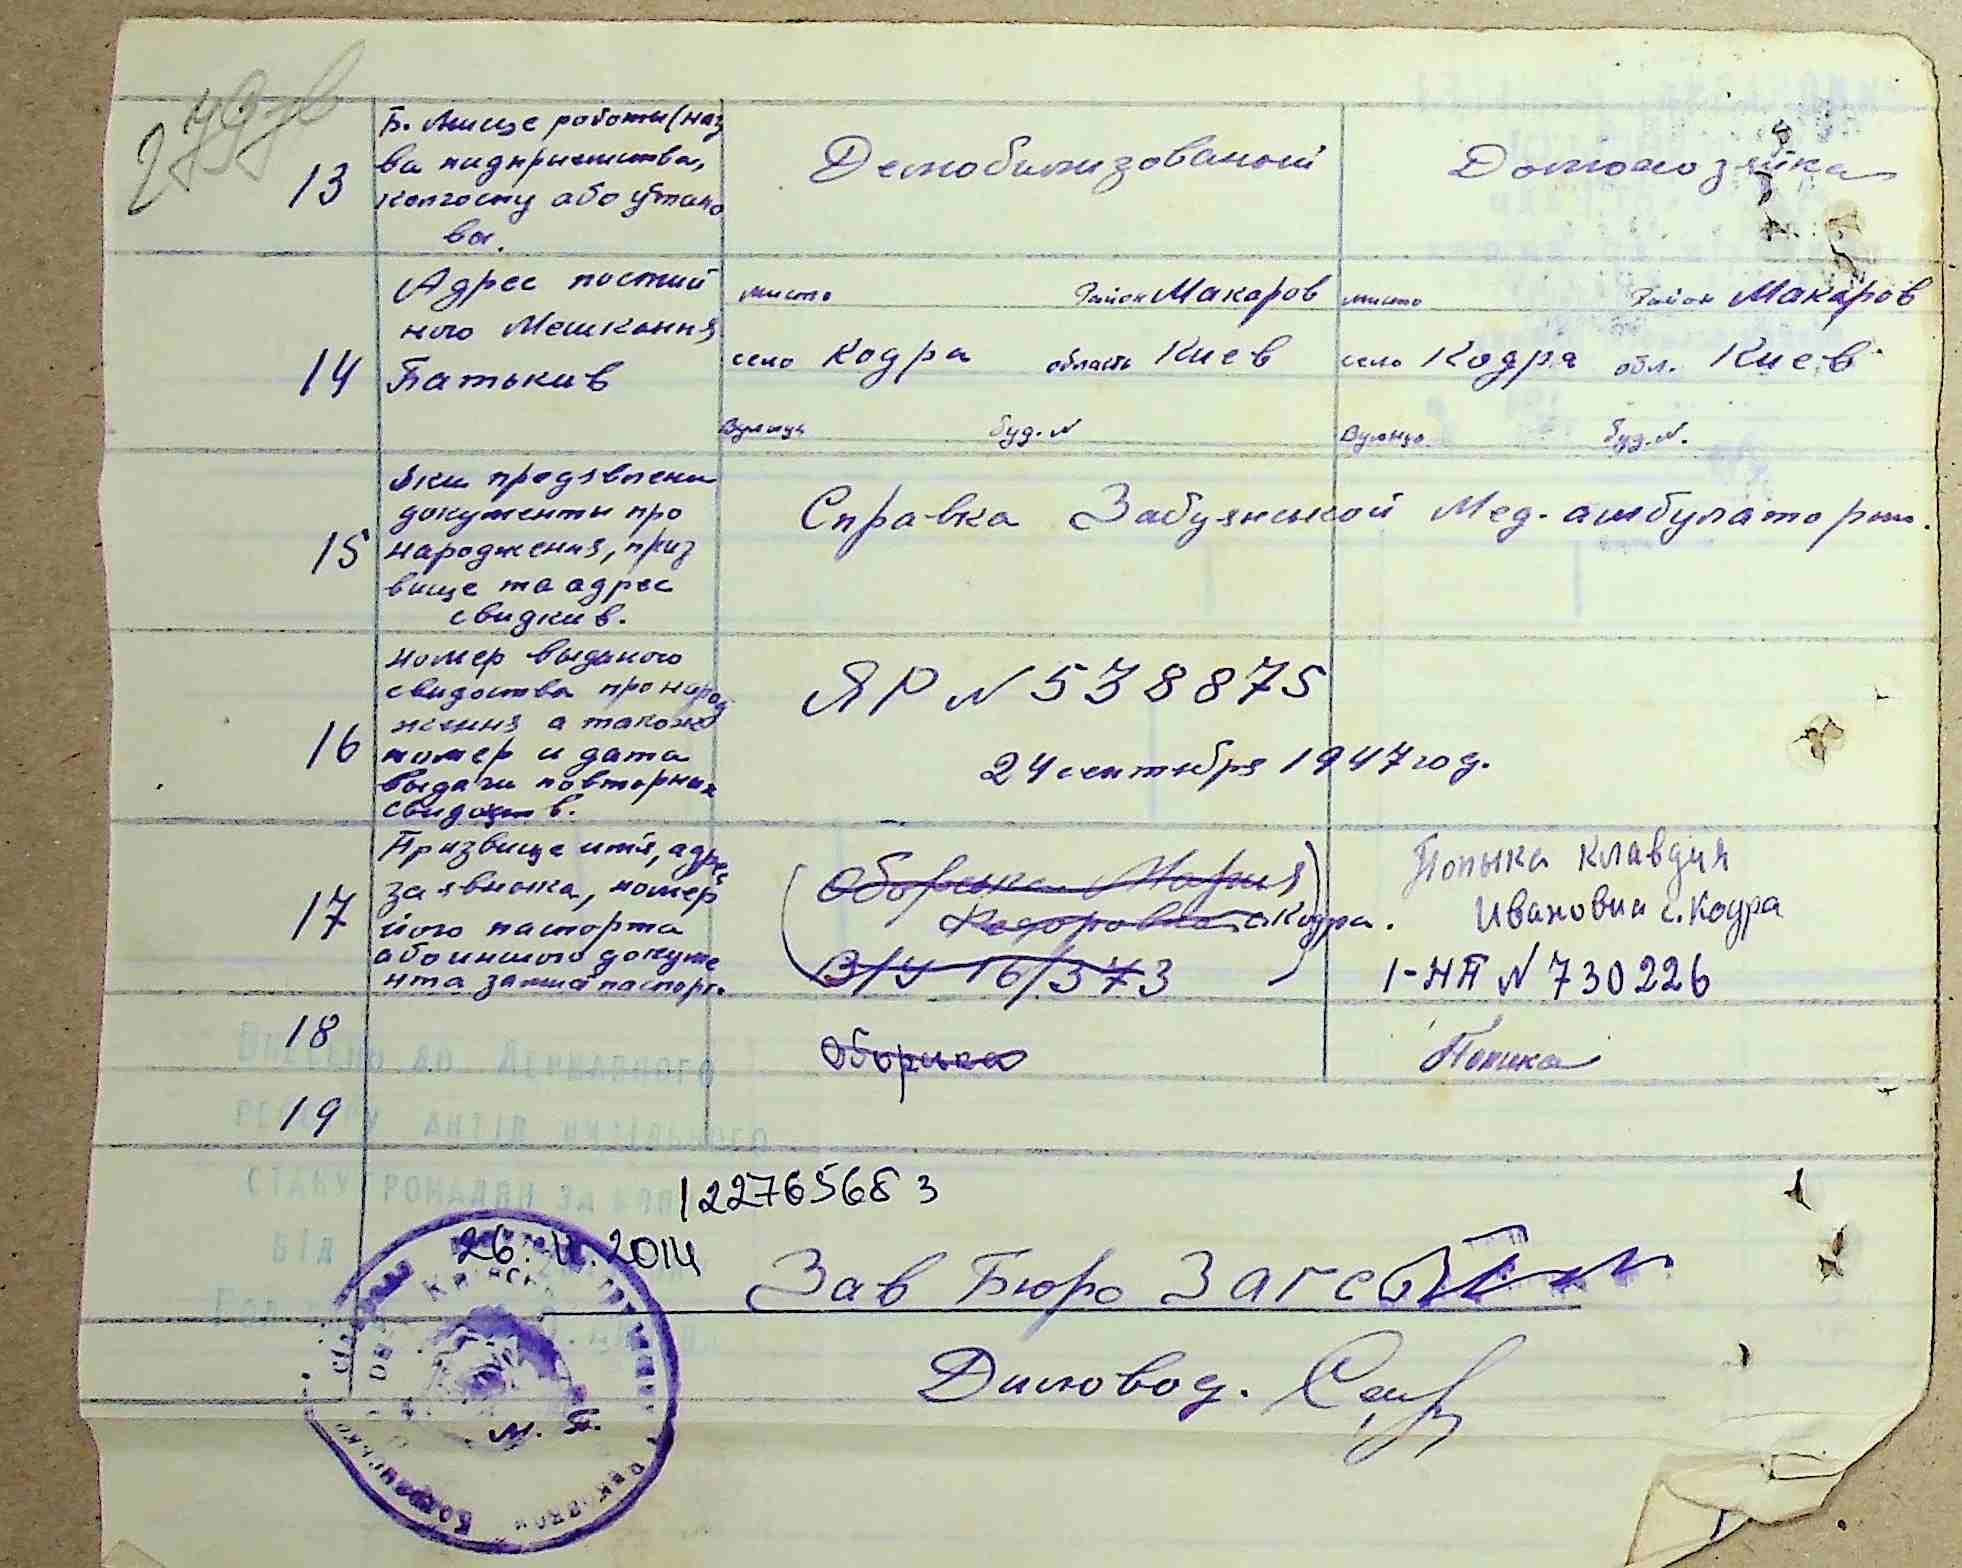 13 Б. Мисце роботы (наз
ва пидприемства,
колгоспу або устано
ва.
Демобилизованый Домохозяйка
14 Адрес постий
ного Мешкання
Батькив
мисто Район Макаров мисто Район Макаров
село Кодра область Киев село Кодра обл. Киев
Вулиця буд. N Вулиця буд. N.
15 Яки предявлени
документы про
народження, приз
вище та адрес
свидкив.
Справка Забуянськой Мед. амбулатории.
16 номер выданого
свидоства про народ
ження а також
номер и дата
выдачи повторных
свидоцтв.
ЯР N 538875
24 сентября 1947 год.
17 Призвище имя, адрес
заявника, номер
його паспорта
або иншого докуме
нта замиа паспорт.
(Оборська Мария
Федоровна с Кодра.
В/У 16/373)
Попыка Клавдия
Ивановна с. Кодра
1-НП N 730226
18 Оборська Попика
19
Внесено до Державного
реєстру актів цивільного
стану громадян за
122765683
від 26. 11. 2014
Зав Бюро Загс
Диловод.
М. П.